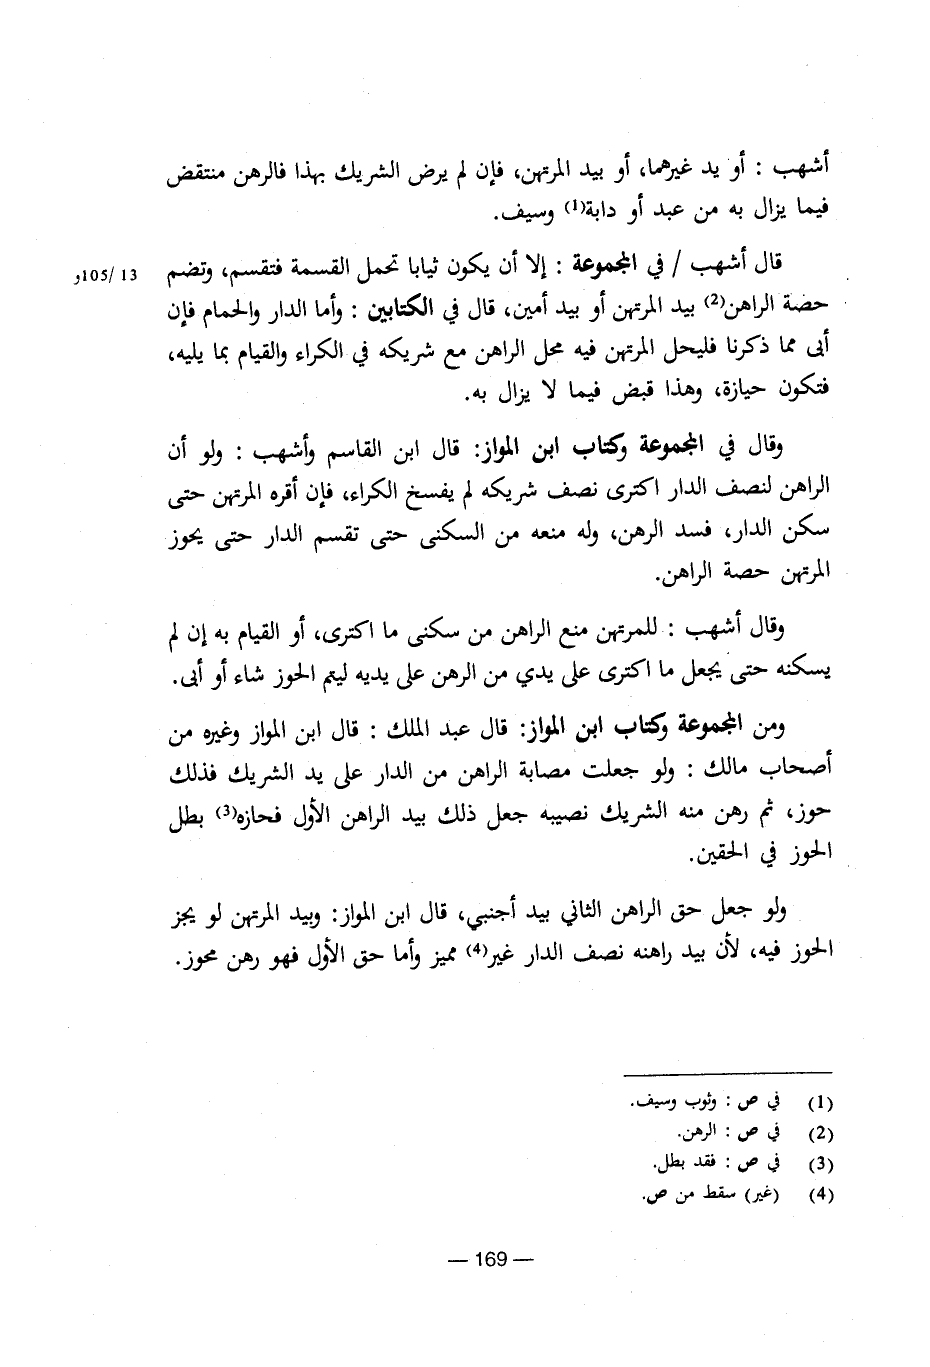 أشهب : أو يد غيرهما، أو بيد المرتهن، فإن لم يرض الشريك بهذا فالرهن منتقض
فيما يزال به من عبد أو دابة(1) وسيف.
قال أشهب / في المجموعة : إلا أن يكون ثيابا تحمل القسمة فتقسم، وتضم
13 /105و
حصة الراهن(2) بيد المرتهن أو بيد أمين، قال في الكتابين : وأما الدار والحمام فإن
أبى مما ذكرنا فليحل المرتهن فيه محل الراهن مع شريكه في الكراء والقيام بما يليه،
فتكون حيازة، وهذا قبض فيما لا يزال به.
وقال في المجموعة وكتاب ابن المواز: قال ابن القاسم وأشهب : ولو أن
الراهن لنصف الدار اكترى نصف شريكه لم يفسخ الكراء، فإن أقره المرتهن حتى
سكن الدار، فسد الرهن، وله منعه من السكنى حتى تقسم الدار حتى يحوز
المرتهن حصة الراهن.
وقال أشهب : للمرتهن منع الراهن من سكنى ما اكترى، أو القيام به إن لم
يسكنه حتى يجعل ما اكترى على يدي من الرهن على يديه ليتم الحوز شاء أو أبى.
ومن المجموعة وكتاب ابن المواز: قال عبد الملك : قال ابن المواز وغيره من
أصحاب مالك : ولو جعلت مصابة الراهن من الدار على يد الشريك فذلك
حوز، ثم رهن منه الشريك نصيبه جعل ذلك بيد الراهن الأول فحازه(3) بطل
الحوز في الحقين.
ولو جعل حق الراهن الثاني بيد أجنبي، قال ابن المواز: وبيد المرتهن لو يجز
الحوز فيه، لأن بيد راهنه نصف الدار غير(4) مميز وأما حق الأول فهو رهن محوز.
(1) في ص : وثوب وسيف.
(2) في ص : الرهن.
(3) في ص : فقد بطل.
(4) (غير) سقط من ص.
— 169 —